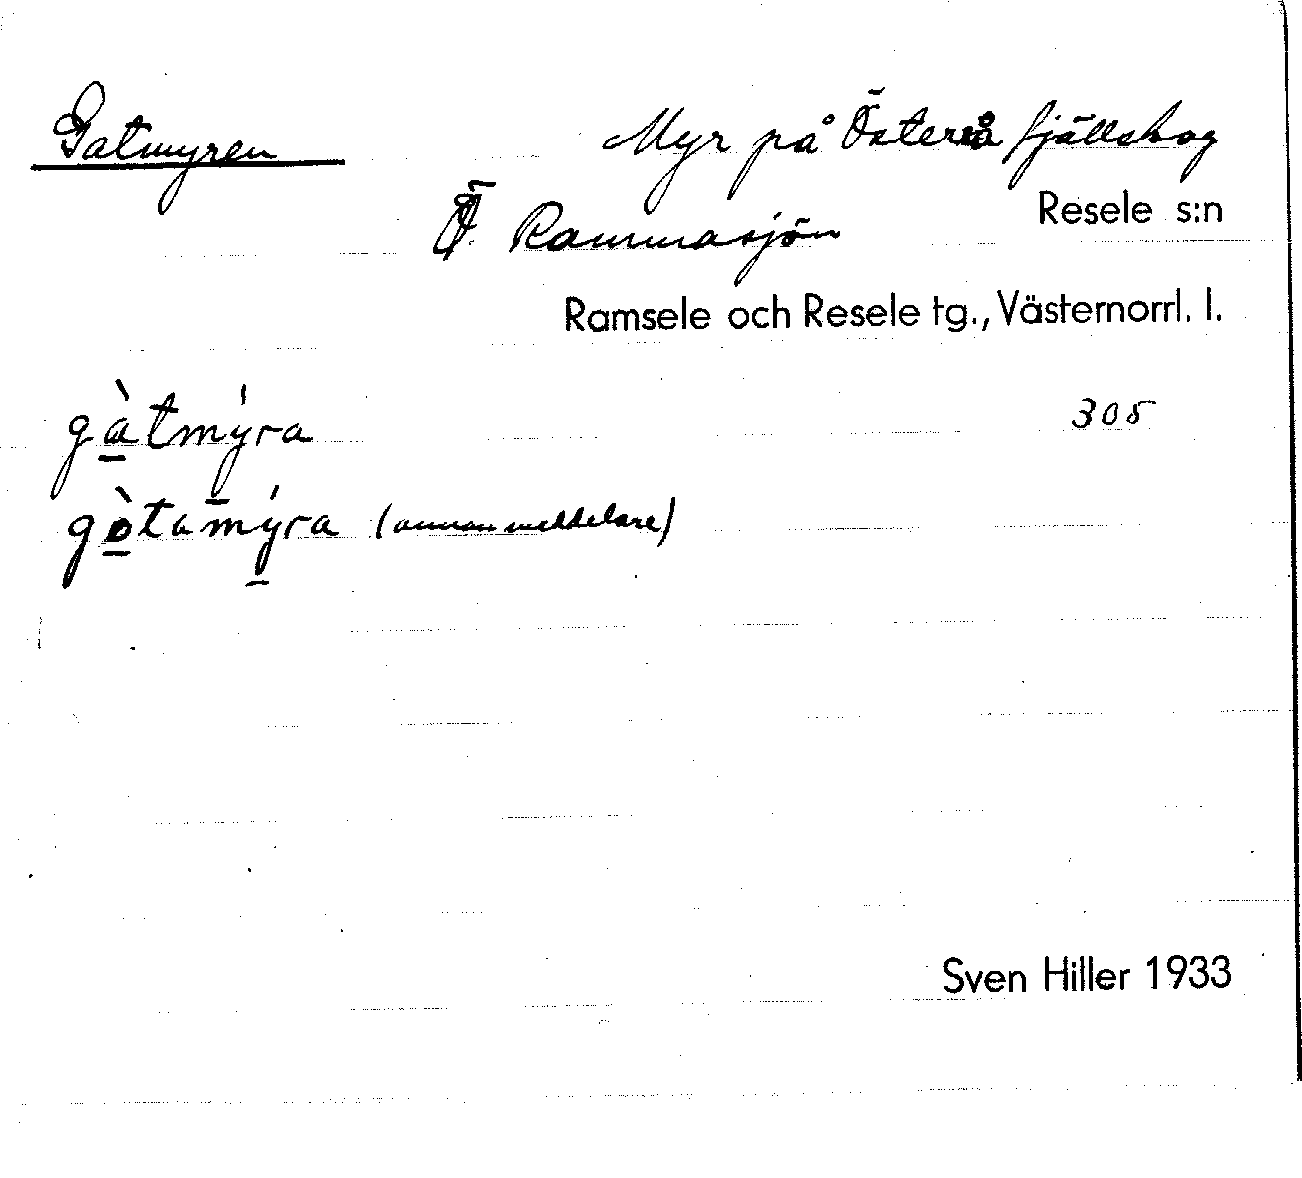 Gatmyren
Myr på Österå fjällskog
Ö. Rammasjön
Resele s:n
Ramsele och Resele tg., Västernorrl. l.
gàtmýra
305
gòtamýra (annan meddelare)
Sven Hiller 1933